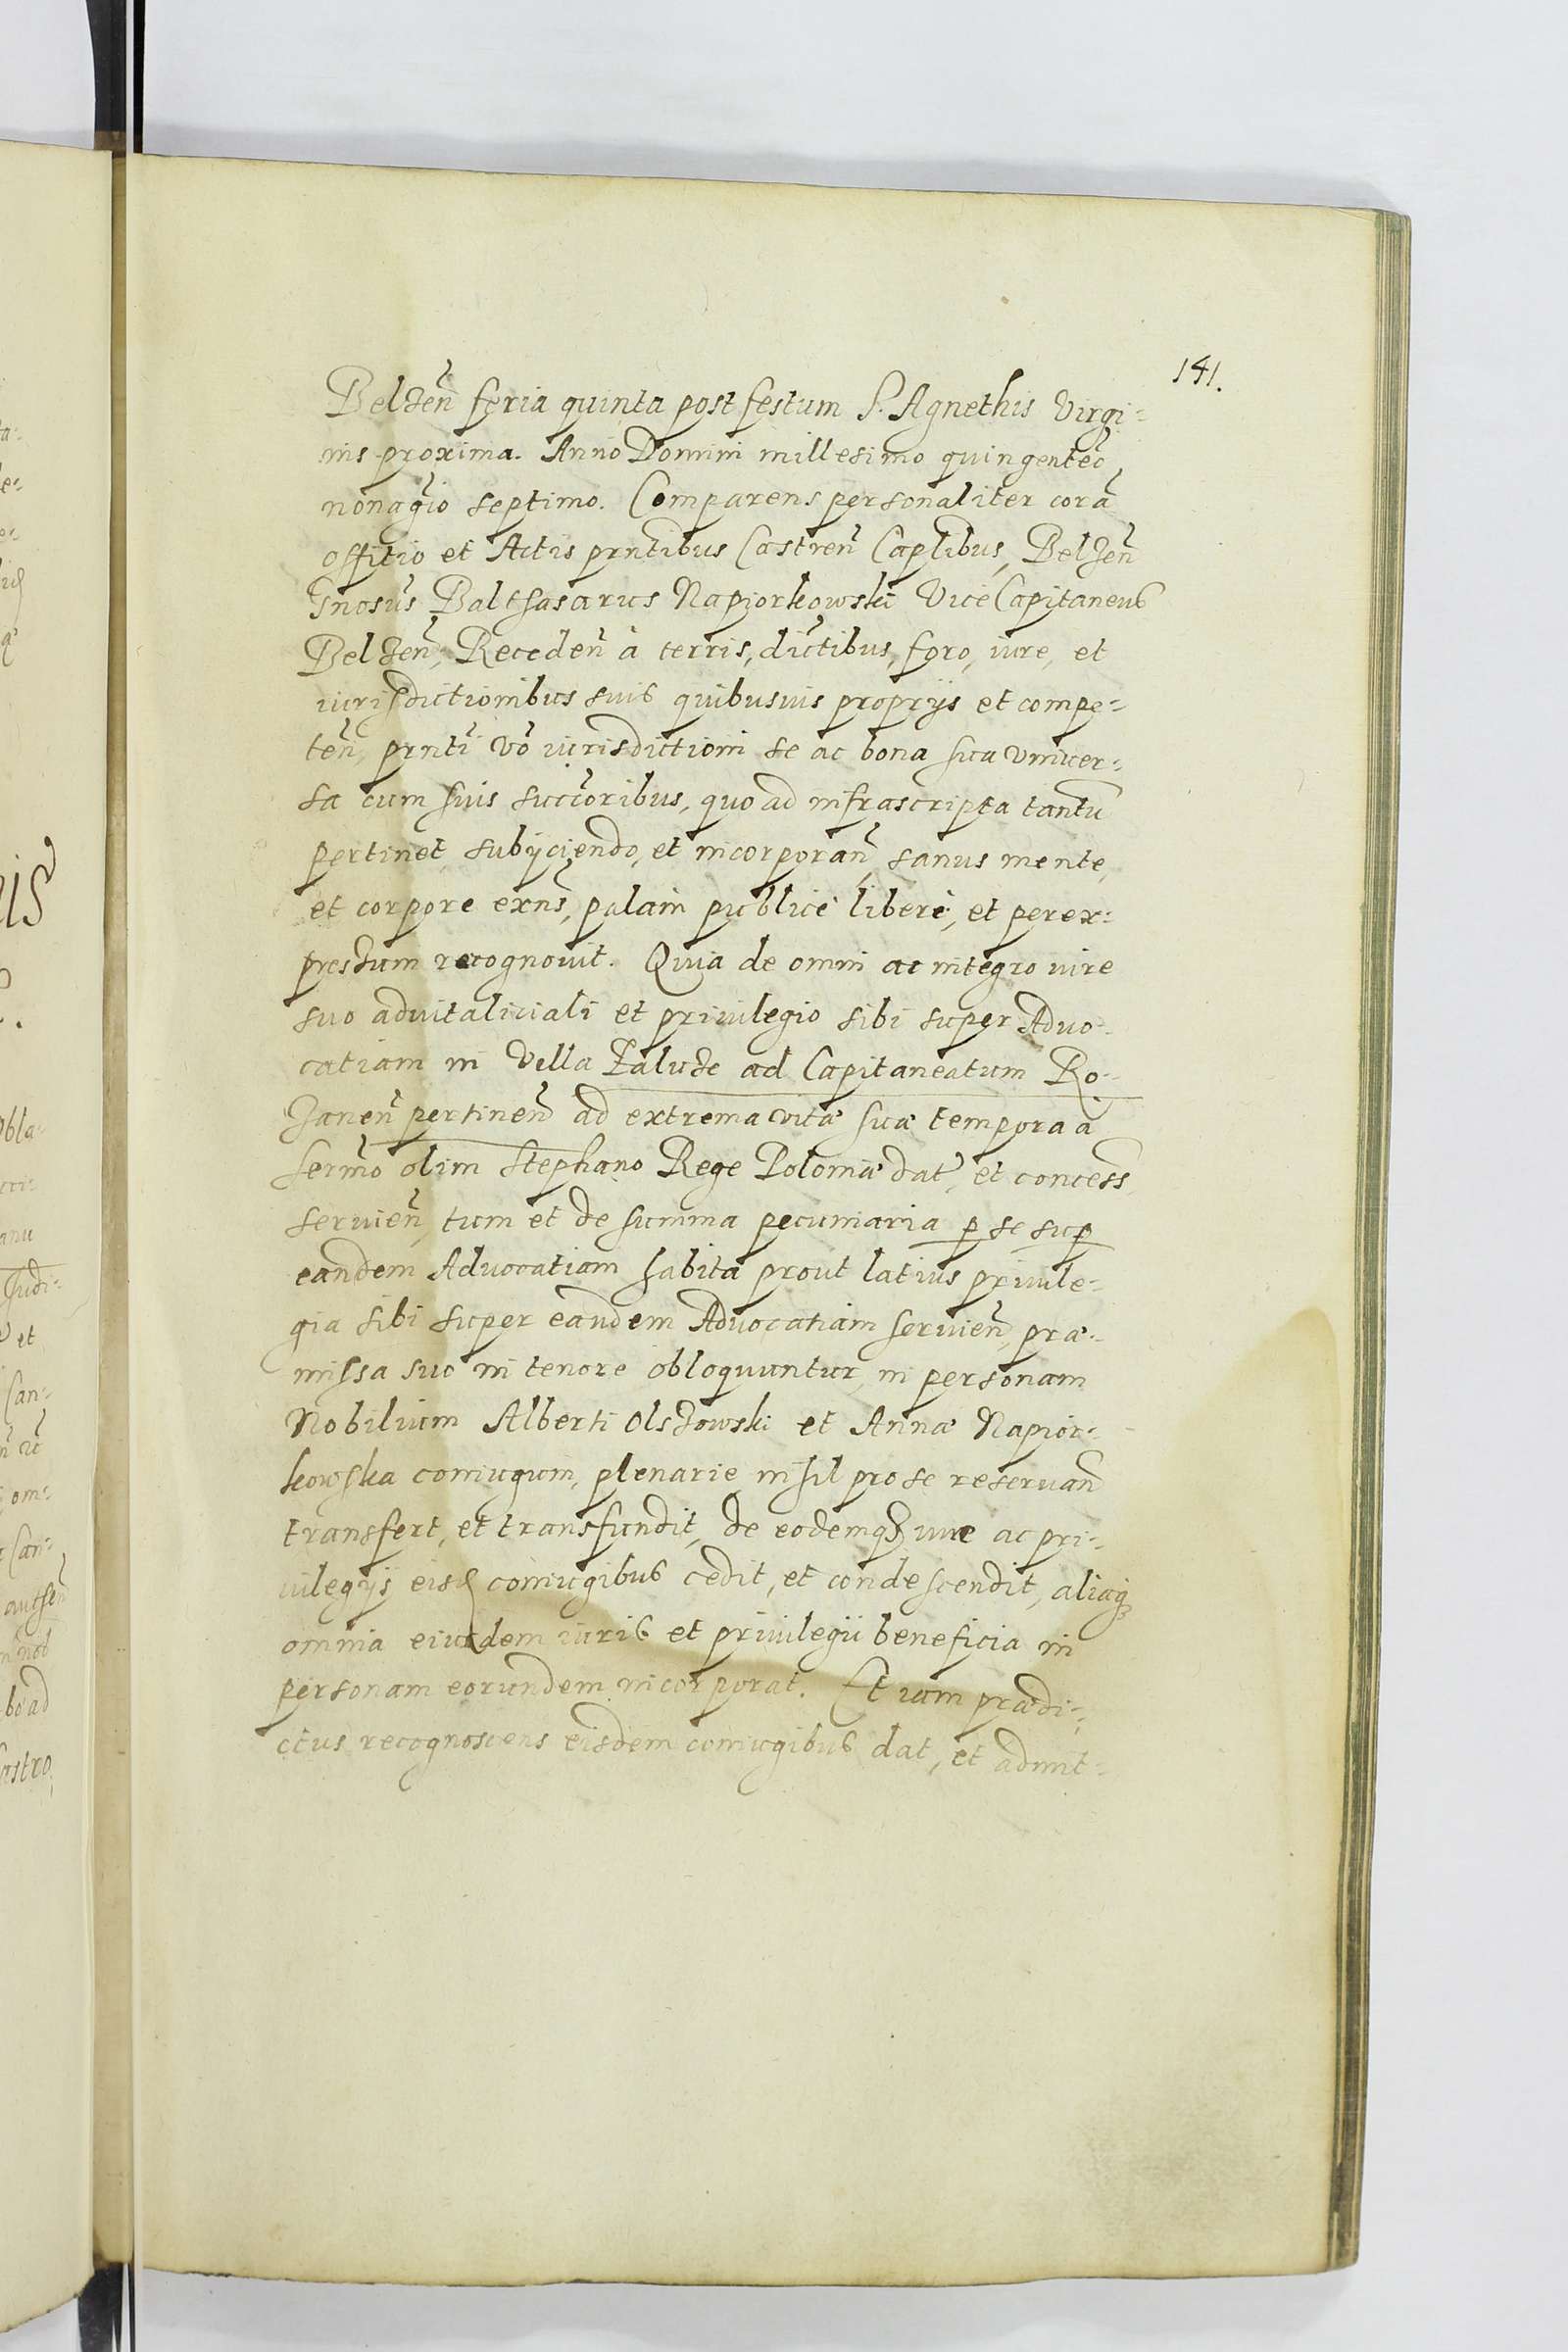 141.
Belzen̄ feria quinta post festum S. Agnethis Virgi-
nis proxima. Anno Domini millesimo quingenteo
nonagio septimo. Comparens personaliter corā
offitio et Actis prntibus Castren̄ Caplibus, Belzen̄
Gnosus Balthasarus Napiorkowski Vice Capitaneus
Belzen̄, Receden̄ à terris, dictibus, foro, iure, et
iurisdictionibus suis quibusuis proprijs et compe-
ten̄, prnti vō iurisdictioni se ac bona sua vniuer-
sa cum suis succoribus, quo ad infrascripta tantū
pertinet, subijciendo, et incorporan̄, sanus mente,
et corpore exn̄s, palam publicè liberè, et per ex-
pressum recognouit. Quia de omni ac integro iure
suo aduitaliciali et priuilegio sibi super Aduo-
catiam in Villa Załuze ad Capitaneatum Ro-
zanen̄ pertinen̄ ad extrema vitæ suæ tempora a
sermo olim Stephano Rege Poloniæ dat, et concess
seruien̄, tum et de summa pecuniaria p se sup
eandem Aduocatiam habita prout latius priuile-
gia sibi super eandem Aduocatiam seruien̄, præ-
missa suo in tenore obloquuntur, in personam
Nobilium Alberti Olszowski et Annæ Napior-
kowska coniugum, plenarie nihil pro se reseruan̄
transfert, et transfundit, de eodemqꝫ iure ac pri-
uilegijs eisd coniugibus cedit, et condescendit, aliaqꝫ
omnia eiusdem iuris et priuilegii beneficia in
personam eorundem incorporat. Et iam prædi-
ctus recognoscens eisdem coniugibus dat, et admit-